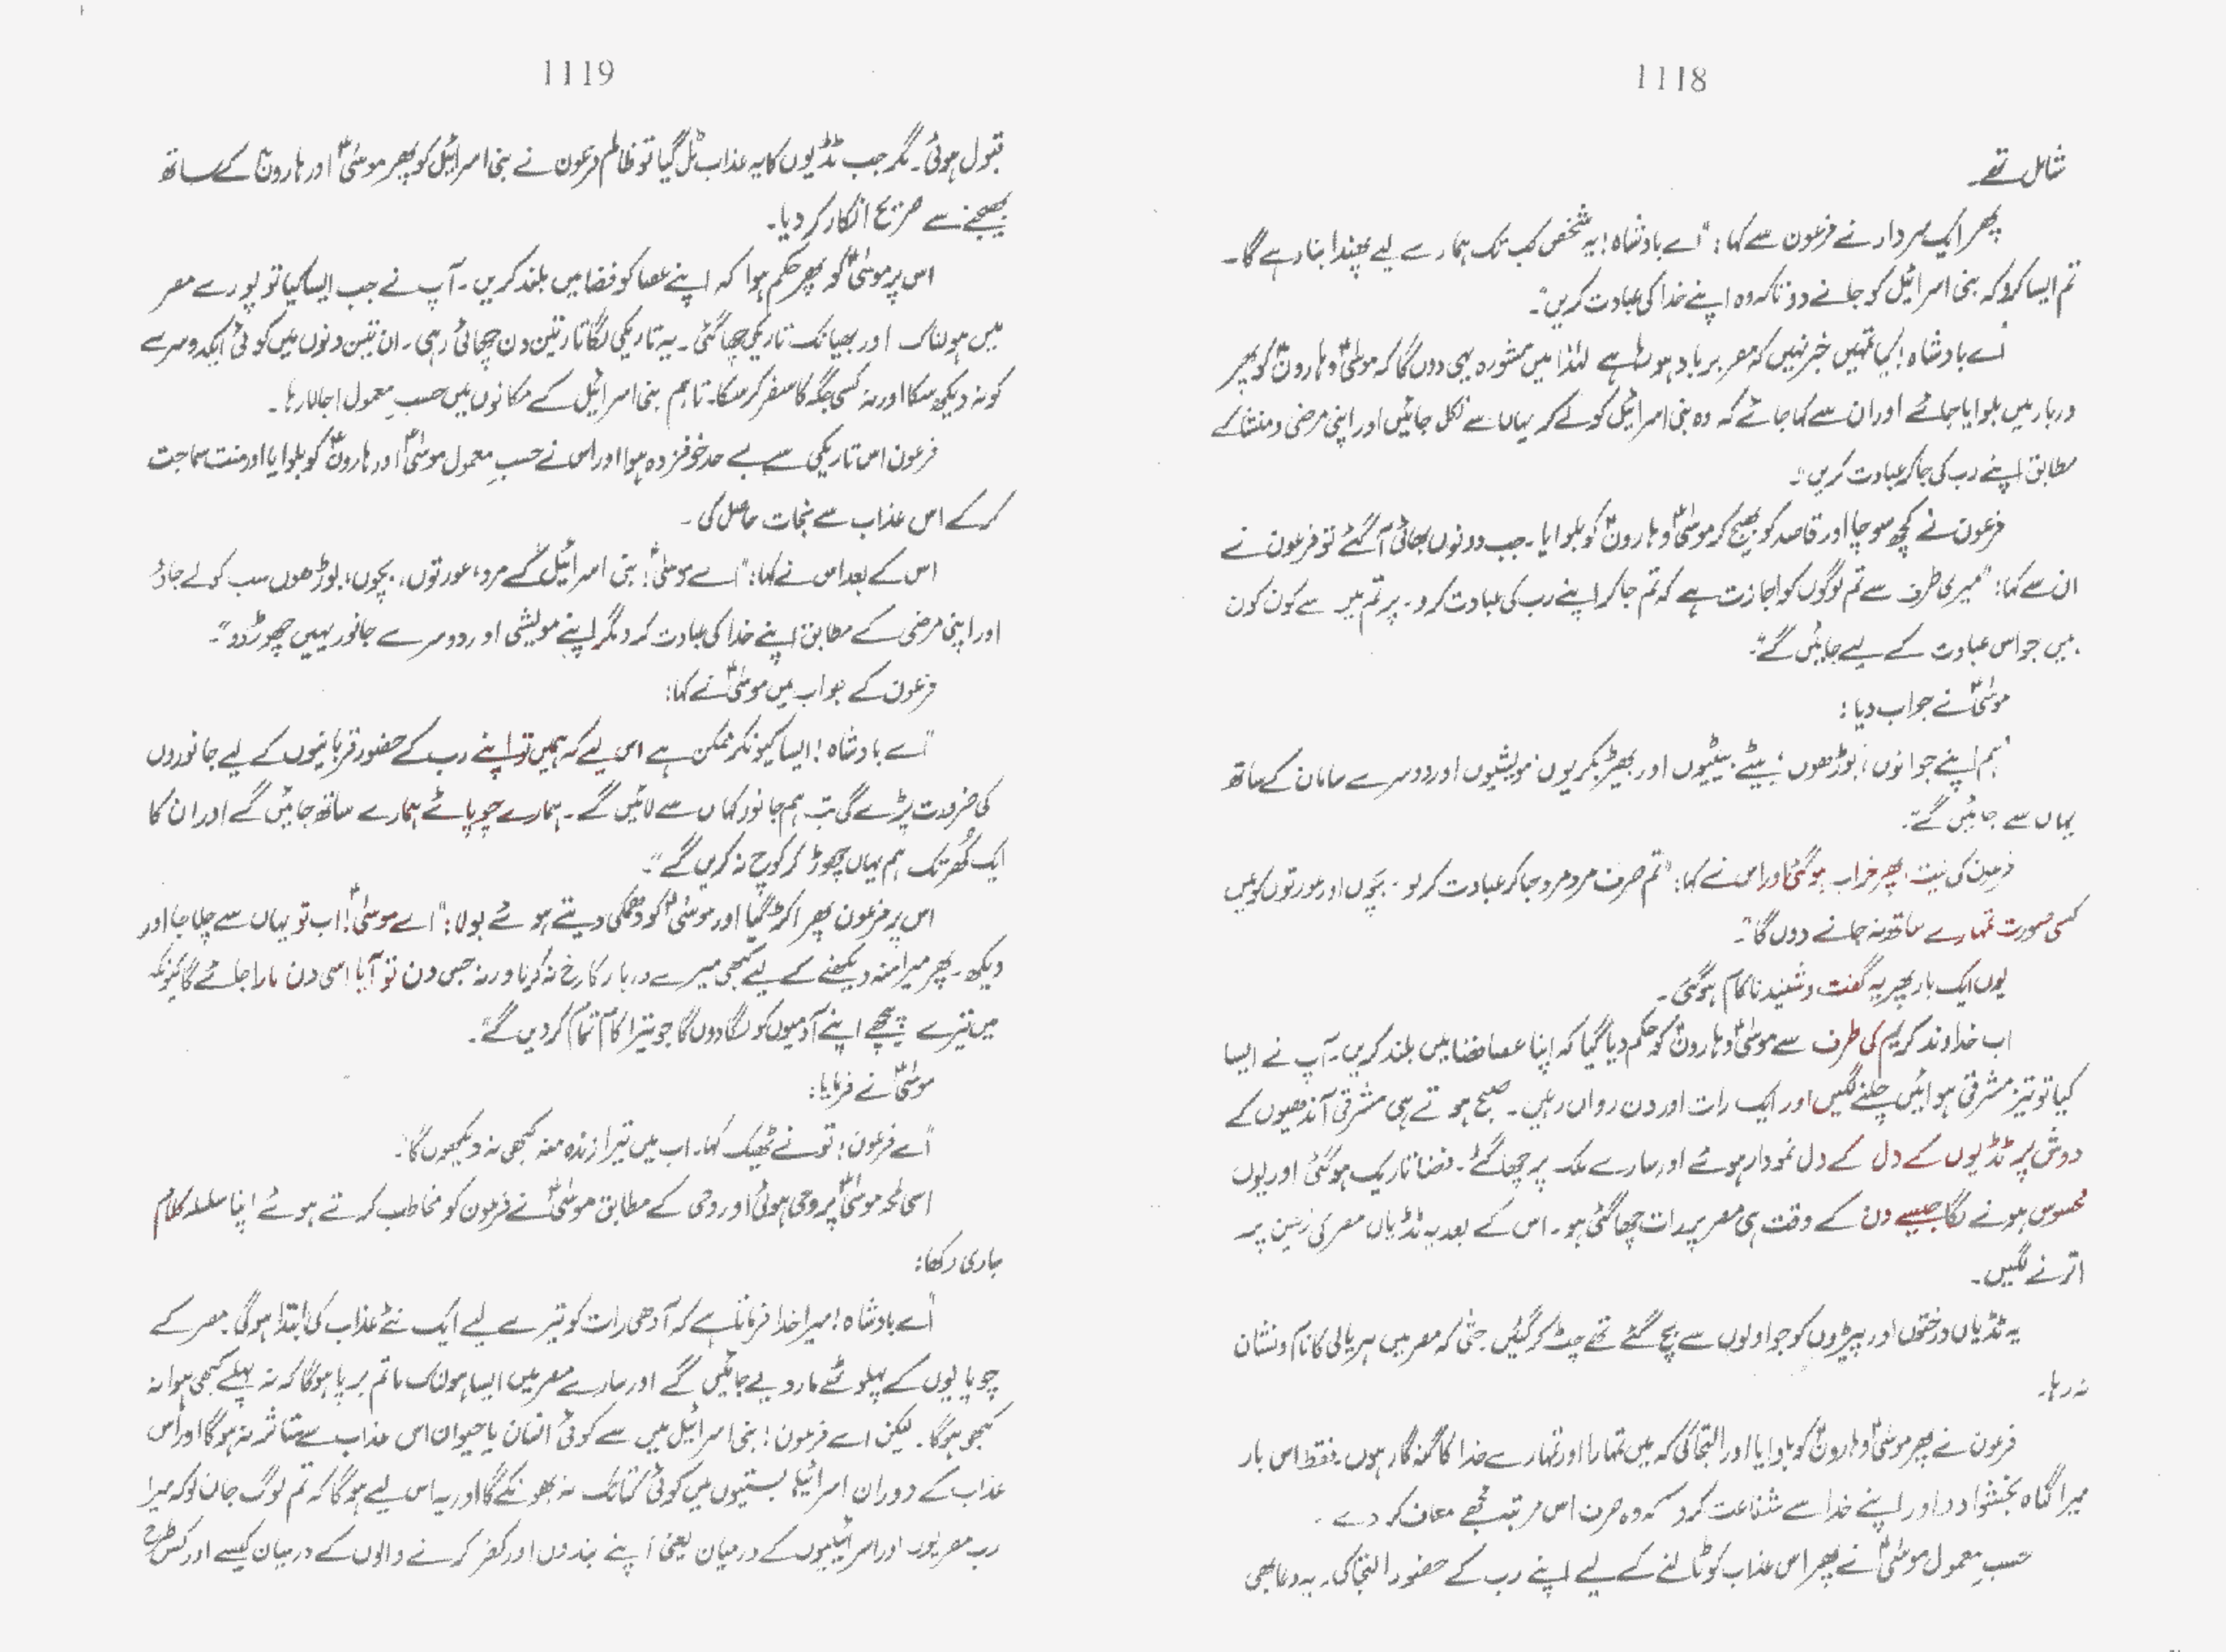 1118
شامل تھے۔
پھر ایک سردار نے فرعون سے کہا: "اے بادشاہ! یہ شخص کب تک ہمارے لیے پھندا بنا رہے گا۔
تم ایسا کرو کہ بنی اسرائیل کو جانے دو تاکہ وہ اپنے خدا کی عبادت کریں"۔
اے بادشاہ! کیا تمہیں خبر نہیں کہ مصر برباد ہو رہا ہے لہٰذا میں مشورہ یہی دوں گا کہ موسیٰؑ و ہارونؑ کو پھر
دربار میں بلوایا جائے اور ان سے کہا جائے کہ وہ بنی اسرائیل کو لے کر یہاں سے نکل جائیں اور اپنی مرضی و منشا کے
مطابق اپنے رب کی جا کر عبادت کریں"۔
فرعون نے کچھ سوچا اور قاصد کو بھیج کر موسیٰؑ و ہارونؑ کو بلوایا۔ جب دونوں بھائی آ گئے تو فرعون نے
ان سے کہا: "میری طرف سے تم لوگوں کو اجازت ہے کہ تم جا کر اپنے رب کی عبادت کرو۔ پر تم میں سے کون کون
ہیں جو اس عبادت کے لیے جائیں گے"۔
موسیٰؑ نے جواب دیا:
"ہم اپنے جوانوں، بوڑھوں، بیٹے بیٹیوں اور بھیڑ بکریوں مویشیوں اور دوسرے سامان کے ساتھ
یہاں سے جائیں گے"۔
فرعون کی نیت پھر خراب ہو گئی اور اس نے کہا: "تم صرف مرد مرد جا کر عبادت کر لو۔ بچوں اور عورتوں کو میں
کسی صورت تمہارے ساتھ نہ جانے دوں گا"۔
یوں ایک بار پھر یہ گفت و شنید ناکام ہو گئی۔
اب خداوند کریم کی طرف سے موسیٰؑ و ہارونؑ کو حکم دیا گیا کہ اپنا عصا فضا میں بلند کریں۔ آپ نے ایسا
کیا تو تیز مشرقی ہوائیں چلنے لگیں اور ایک رات اور دن رواں رہیں۔ صبح ہوتے ہی مشرقی آندھیوں کے
دوش پر ٹڈیوں کے دل کے دل نمودار ہوئے اور سارے ملک پر چھا گئے۔ فضا تاریک ہو گئی اور یوں
محسوس ہونے لگا جیسے دن کے وقت ہی مصر پر رات چھا گئی ہو۔ اس کے بعد یہ ٹڈیاں مصر کی زمین پر
اترنے لگیں۔
یہ ٹڈیاں درختوں اور پیڑوں کو جو اولوں سے بچ گئے تھے چٹ کر گئیں حتیٰ کہ مصر میں ہریالی کا نام و نشان
نہ رہا۔
فرعون نے پھر موسیٰؑ و ہارونؑ کو بلوایا اور التجا کی کہ میں تمہارا اور تمہارے خدا کا گنہ گار ہوں۔ فقط اس بار
میرا گناہ بخشوا دو اور اپنے خدا سے شفاعت کرو کہ وہ صرف اس مرتبہ مجھے معاف کر دے۔
حسبِ معمول موسیٰؑ نے پھر اس عذاب کو ٹالنے کے لیے اپنے رب کے حضور التجا کی۔ یہ دعا بھی
1119
قبول ہوئی۔ مگر جب ٹڈیوں کا یہ عذاب ٹل گیا تو ظالم فرعون نے بنی اسرائیل کو پھر موسیٰؑ اور ہارونؑ کے ساتھ
بھیجنے سے صریح انکار کر دیا۔
اس پر موسیٰؑ کو پھر حکم ہوا کہ اپنے عصا کو فضا میں بلند کریں۔ آپ نے جب ایسا کیا تو پورے مصر
میں ہولناک اور بھیانک تاریکی چھا گئی۔ یہ تاریکی لگاتار تین دن چھائی رہی۔ ان تین دنوں میں کوئی ایک دوسرے
کو نہ دیکھ سکا اور نہ کسی جگہ کا سفر کر سکا۔ تاہم بنی اسرائیل کے مکانوں میں حسبِ معمول اجالا رہا۔
فرعون اس تاریکی سے بے حد خوفزدہ ہوا اور اس نے حسبِ معمول موسیٰؑ اور ہارونؑ کو بلوایا اور منت سماجت
کر کے اس عذاب سے نجات حاصل کی۔
اس کے بعد اس نے کہا: "اے موسیٰؑ! بنی اسرائیل کے مرد، عورتوں، بچوں، بوڑھوں سب کو لے جاؤ
اور اپنی مرضی کے مطابق اپنے خدا کی عبادت کرو مگر اپنے مویشی اور دوسرے جانور یہیں چھوڑ دو"۔
فرعون کے جواب میں موسیٰؑ نے کہا:
"اے بادشاہ! ایسا کیونکر ممکن ہے اس لیے کہ ہمیں تو اپنے رب کے حضور قربانیوں کے لیے جانوروں
کی ضرورت پڑے گی تب ہم جانور کہاں سے لائیں گے۔ ہمارے چوپائے ہمارے ساتھ جائیں گے اور ان کا
ایک کُھر تک ہم یہاں چھوڑ کر کوچ نہ کریں گے"۔
اس پر فرعون پھر اکڑ گیا اور موسیٰؑ کو دھمکی دیتے ہوئے بولا: "اے موسیٰؑ! اب تو یہاں سے چلا جا اور
دیکھ۔ پھر میرا منہ دیکھنے کے لیے کبھی میرے دربار کا رخ نہ کرنا ورنہ جس دن تو آیا اسی دن مارا جائے گا کیونکہ
میں تیرے پیچھے اپنے آدمیوں کو لگا دوں گا جو تیرا کام تمام کر دیں گے"۔
موسیٰؑ نے فرمایا:
"اے فرعون! تو نے ٹھیک کہا۔ اب میں تیرا زندہ منہ کبھی نہ دیکھوں گا"۔
اسی لمحہ موسیٰؑ پر وحی ہوئی اور وحی کے مطابق موسیٰؑ نے فرعون کو مخاطب کرتے ہوئے اپنا سلسلہ کلام
جاری رکھا:
"اے بادشاہ! میرا خدا فرماتا ہے کہ آدھی رات کو تیرے لیے ایک نئے عذاب کی ابتدا ہو گی۔ مصر کے
چوپایوں کے پہلوٹھے مار دیے جائیں گے اور سارے مصر میں ایسا ہولناک ماتم برپا ہو گا کہ نہ پہلے کبھی ہوا نہ
کبھو ہو گا۔ لیکن اے فرعون! بنی اسرائیل میں سے کوئی انسان یا حیوان اس عذاب سے متاثر نہ ہو گا اور اس
عذاب کے دوران اسرائیلی بستیوں میں کوئی کتا تک نہ بھونکے گا اور یہ اس لیے ہو گا کہ تم لوگ جان لو کہ میرا
رب مصریوں اور اسرائیلیوں کے درمیان یعنی اپنے بندوں اور کفر کرنے والوں کے درمیان کیسے اور کس طرح